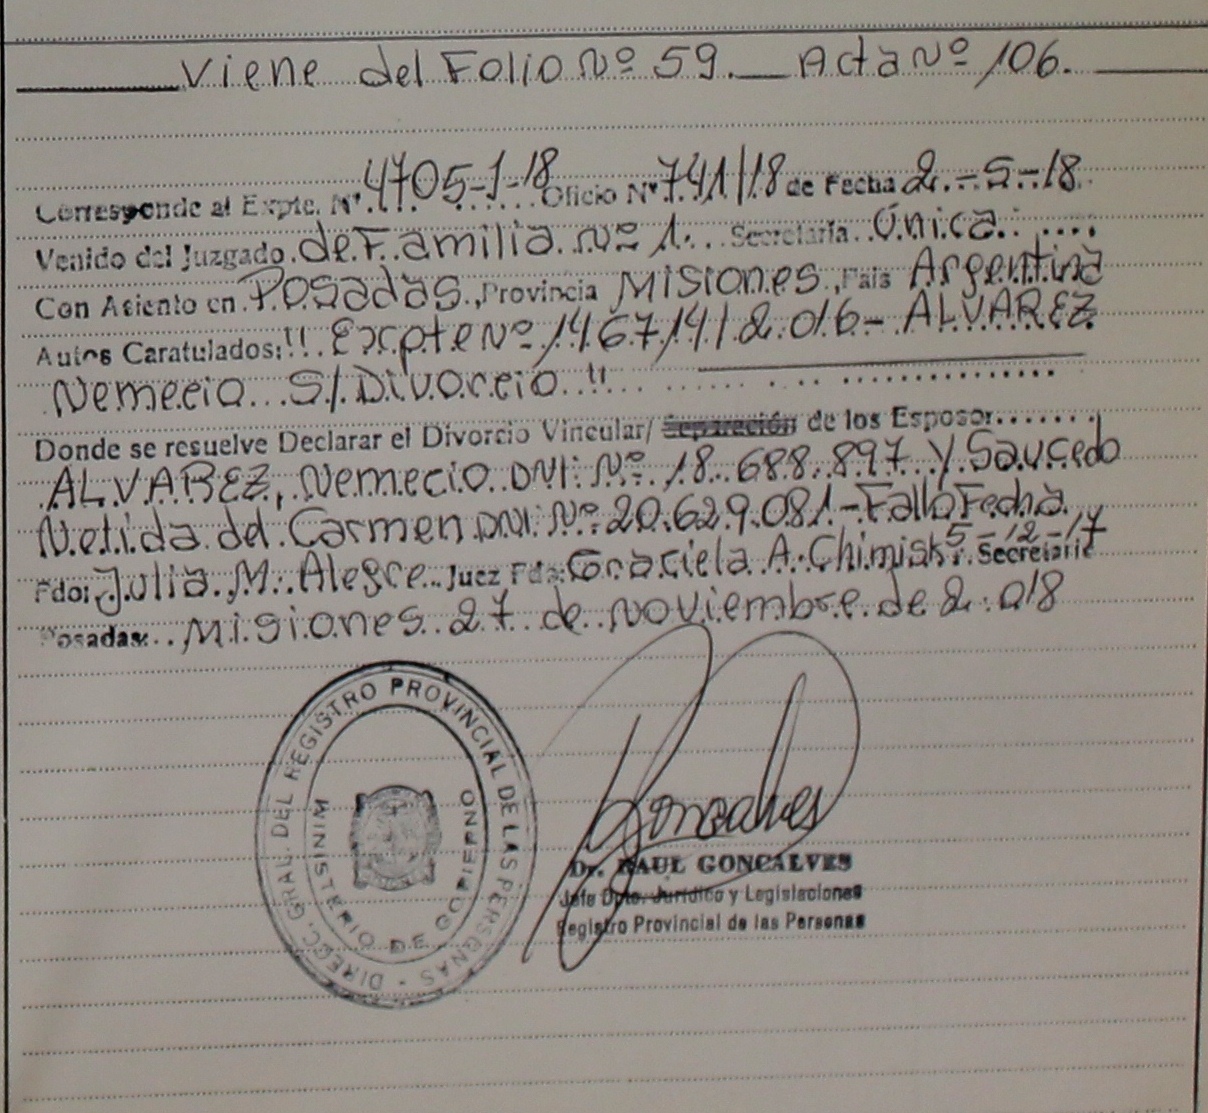 Viene del Folio Nº 59. Acta Nº 106.
Corresponde al Expte. Nº 4705-1-18 Oficio Nº 741/18 de Fecha 2.-5-18
Venido del Juzgado de Familia Nº 1. Secretaría Única.
Con Asiento en Posadas, Provincia Misiones, País Argentina
Autos Caratulados: "Excpte Nº 146714/2.016- ALVAREZ
Nemecio S/Divorcio"
Donde se resuelve Declarar el Divorcio Vincular/ Separación de los Esposor
ALVAREZ, Nemecio DNI: Nº 18.688.897 y Saucedo
Nelida del Carmen DNI: Nº 20.629.081-Fallo Fecha
5-12-17
Fdo: Julia M. Alegre Juez Fdo: Graciela A. Chimiski Secretarie
Posadas: Misiones 27 de Noviembre de 2.018
DIRECC. GRAL. DEL REGISTRO PROVINCIAL DE LAS PERSONAS -
MINISTERIO DE GOBIERNO
Goncalves
Dr. RAUL GONCALVES
Jefe Dpto. Jurídico y Legislaciones
Registro Provincial de las Personas